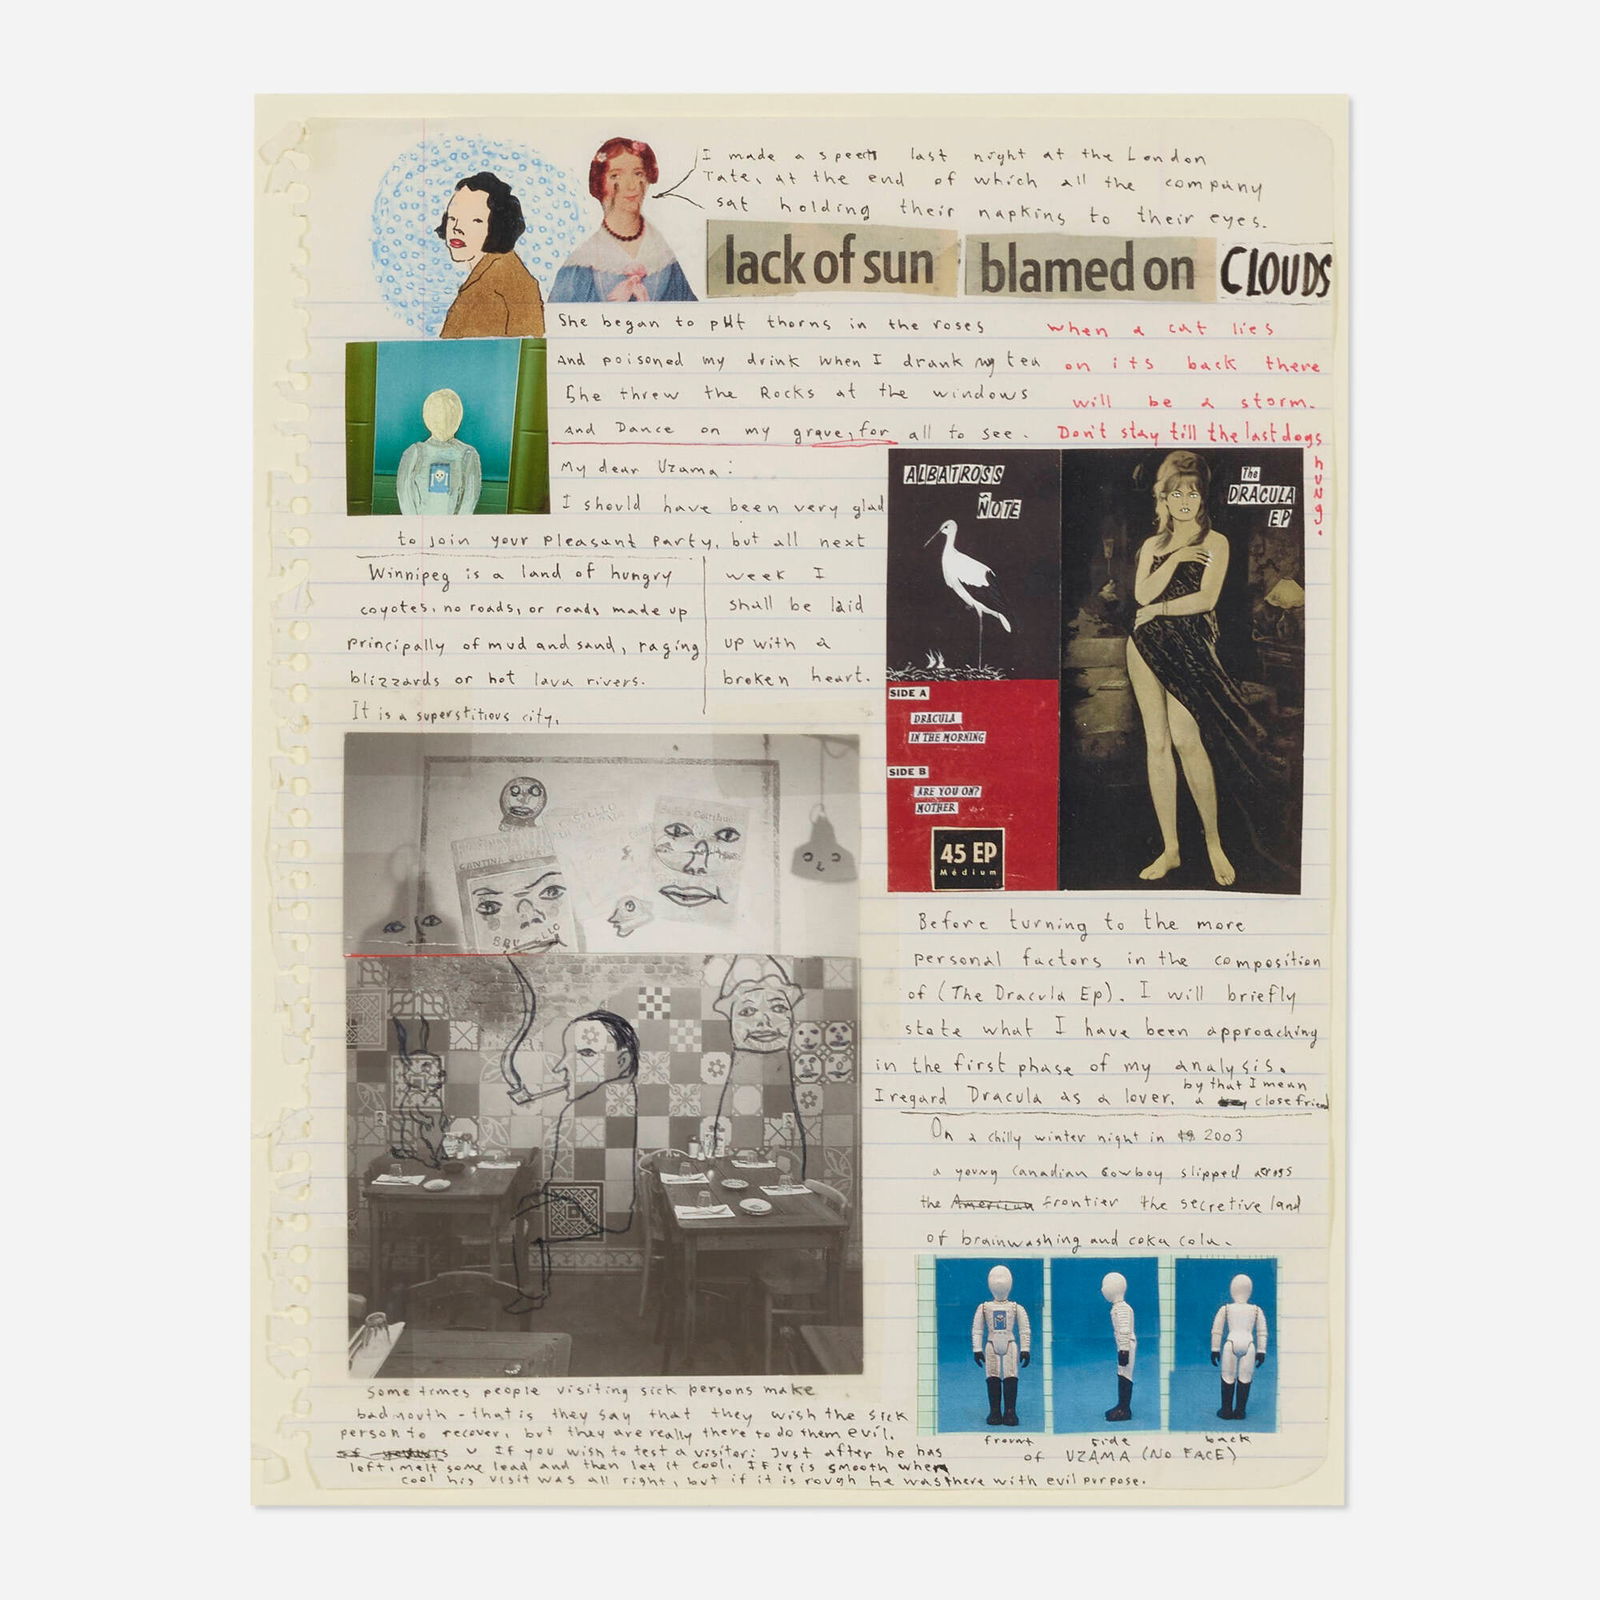 I made a speech last night at the London
Tate, at the end of which all the company
sat holding their napkins to their eyes.
lack of sun blamed on CLOUDS
She began to put thorns in the roses
And poisoned my drink when I drank my tea
She threw the Rocks at the windows
and Dance on my grave, for all to see.
when a cat lies
on its back there
will be a storm.
Don't stay till the last dogs
hung.
My dear Uzama:
I should have been very glad
to join your pleasant party, but all next
week I
shall be laid
up with a
broken heart.
Winnipeg is a land of hungry
coyotes, no roads, or roads made up
principally of mud and sand, raging
blizzards or hot lava rivers.
It is a superstitious city,
ALBATROSS
NOTE
The
DRACULA
EP
SIDE A
DRACULA
IN THE MORNING
SIDE B
ARE YOU ON?
MOTHER
45 EP
Médium
CASTELLO
CANTINA
Before turning to the more
personal factors in the composition
of (The Dracula Ep). I will briefly
state what I have been approaching
in the first phase of my analysis.
by that I mean
I regard Dracula as a lover, a close friend
On a chilly winter night in 2003
a young Canadian Cowboy slipped across
the American frontier the secretive land
of brainwashing and coka cola.
fround side back
of UZAMA (NO FACE)
Some times people visiting sick persons make
bad mouth - that is they say that they wish the sick
person to recover, but they are really there to do them evil.
If you wish to test a visitor: Just after he has
left, melt some lead and then let it cool. If it is smooth when
cool his visit was all right, but if it is rough he was there with evil purpose.